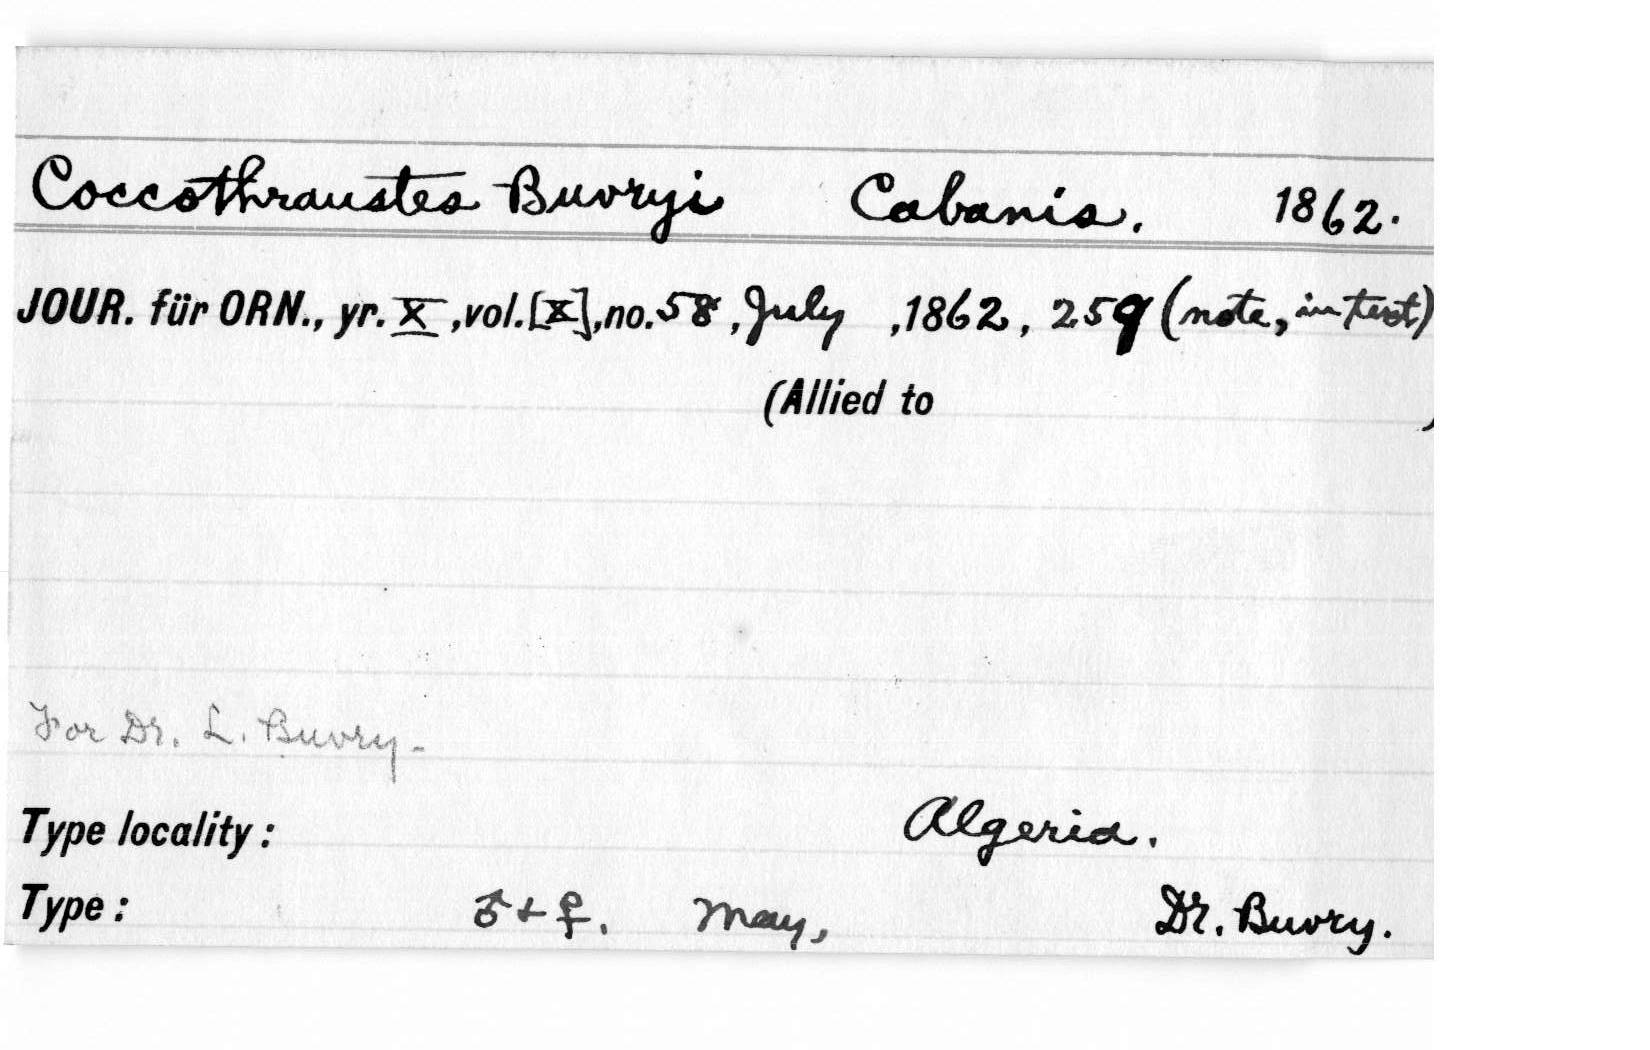 Coccothraustes Buvryi Cabanis. 1862.
JOUR. für ORN., yr. X, vol. [X], no. 58, July, 1862, 259 (note, in text)
(Allied to )
For Dr. L. Buvry.
Type locality: Algeria.
Type: ♂ + ♀. May, Dr. Buvry.